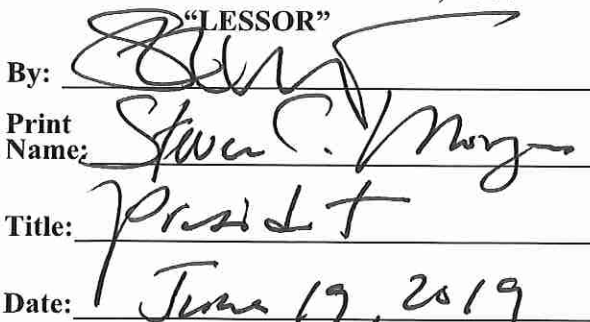 “LESSOR”
By:
Print
Name: Steven C. Morgan
Title: President
Date: June 19, 2019